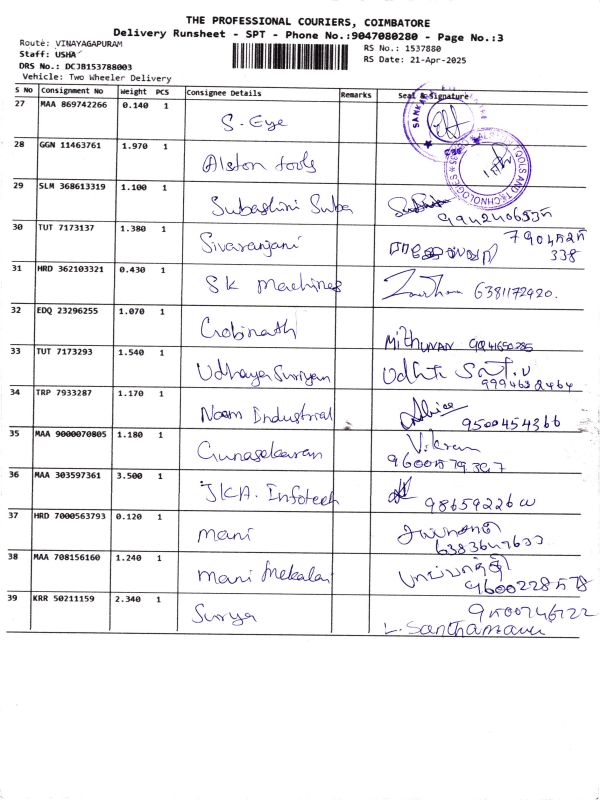 THE PROFESSIONAL COURIERS, COIMBATORE
Delivery Runsheet - SPT - Phone No.:9047080280 - Page No.:3
Route: VINAYAGAPURAM
RS No.: 1537880
Staff: USHA
RS Date: 21-Apr-2025
DRS No.: DCJB153788003
Vehicle: Two Wheeler Delivery
S No Consignment No Weight PCS Consignee Details Remarks Seal & Signature
27 MAA 869742266 0.140 1 S. Eye
28 GGN 11463761 1.970 1 Alston tools
29 SLM 368613319 1.100 1 Subashini Suba
30 TUT 7173137 1.380 1 Sivaranjani
338
31 HRD 362103321 0.430 1 SK Machines 6381172920.
32 EDQ 23296255 1.070 1 Gobinath
MITHUNAN
33 TUT 7173293 1.540 1 Udhaya Suriyan
34 TRP 7933287 1.170 1 Noam Industrial
9500454366
35 MAA 9000070805 1.180 1 Gunasekaran Vikram
36 MAA 303597361 3.500 1 JKA. Infotech
37 HRD 7000563793 0.120 1 Mani
38 MAA 708156160 1.240 1 Mani Mekalai
39 KRR 50211159 2.340 1 Surya